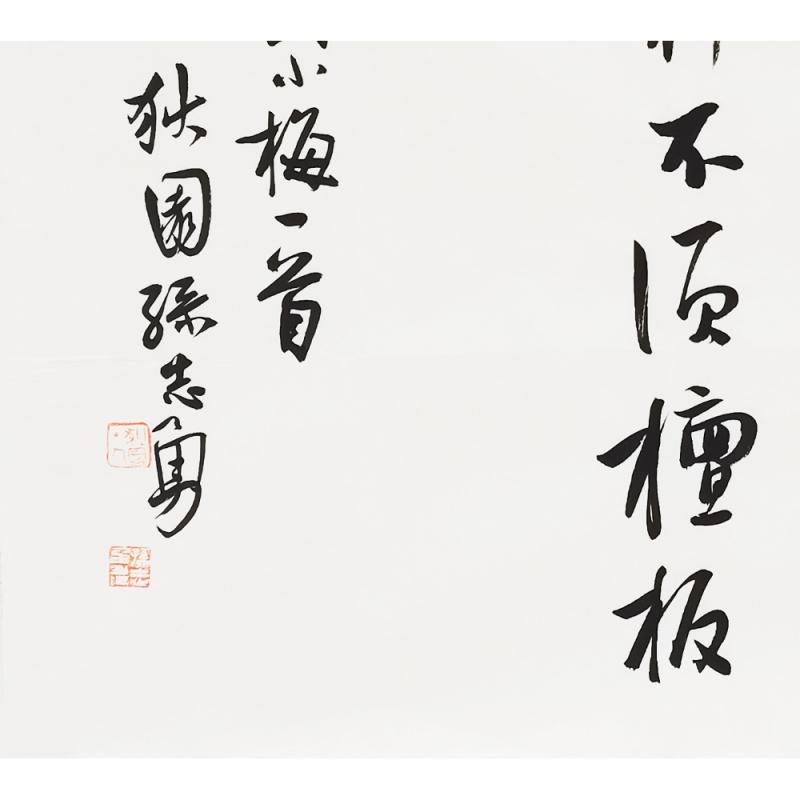 不須檀板
小梅一首
狄園孫志勇